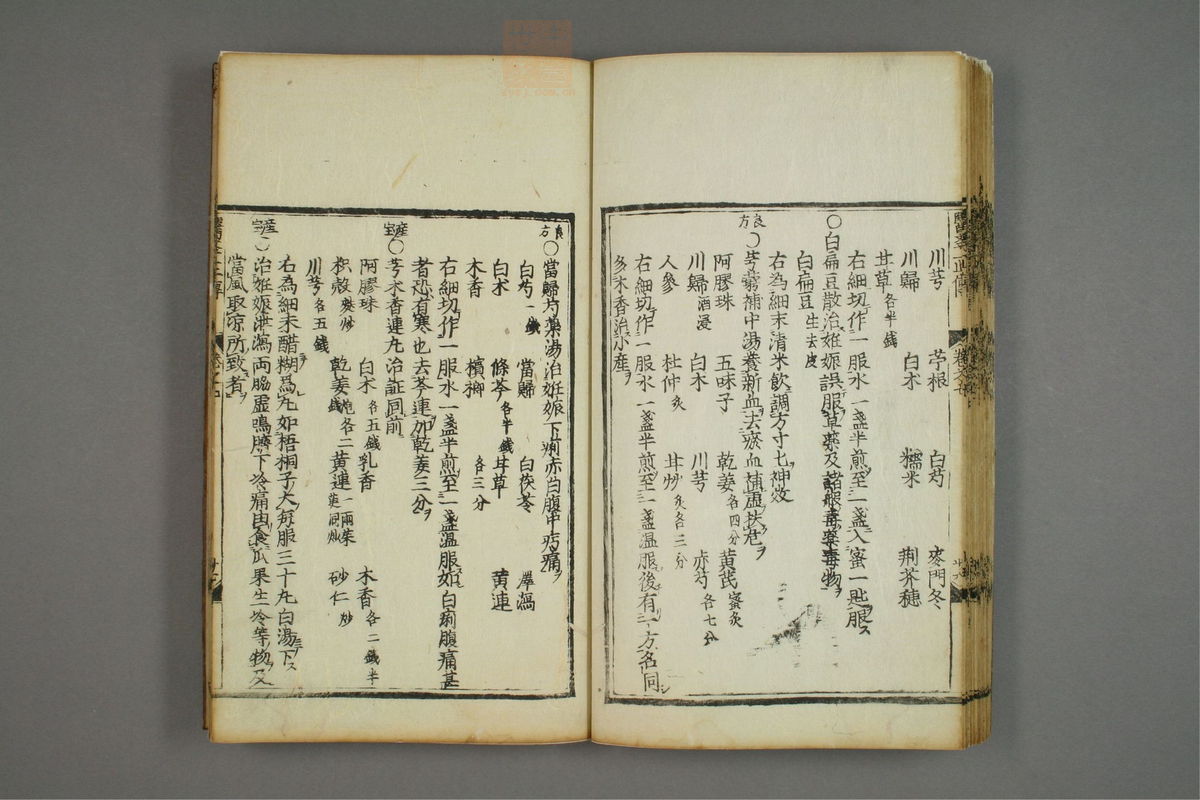 川芎 苧根 白芍 麥門冬
川歸 白朮 糯米 荆芥穗
甘草各半錢
右細切作一服水一盞半煎至一盞入蜜一匙服ス
○白扁豆散治姙娠誤服草藥及諸般毒藥毒物ヲ
白扁豆生去皮
右為細末清米飲調方寸匕神效
良方○芎藭補中湯養新血去瘀血補虛扶危ヲ
阿膠珠 五味子 乾姜各四分 黄芪蜜炙
川歸酒浸 白朮 川芎 赤芍各七分
人參 杜仲炙 甘草炙各三分
右細切作一服水一盞半煎至一盞温服後有一方名同シ
多木香治小產ヲ
良方○當歸芍藥湯治姙娠下痢赤白腹中㽲痛ヲ
白芍一錢 當歸 白茯苓 澤瀉
白朮 條芩各半錢 甘草 黄連
木香 檳榔各三分
右細切作一服水一盞半煎至一盞温服如白痢腹痛甚
者恐有寒也去芩連加乾姜三分ヲ
産宝○芩朮香連丸治証同前
阿膠珠 白朮各五錢 乳香 木香各二錢半
枳殻麸炒 乾姜炮各二錢 黄連一兩茱萸同炒 砂仁炒
川芎各五錢
右為細末醋糊爲丸如梧桐子大每服三十丸白湯下ス
産宝○治姙娠泄瀉両脇虚鳴臍下冷痛由食瓜果生冷等物及
當風取凉所致者ヲ